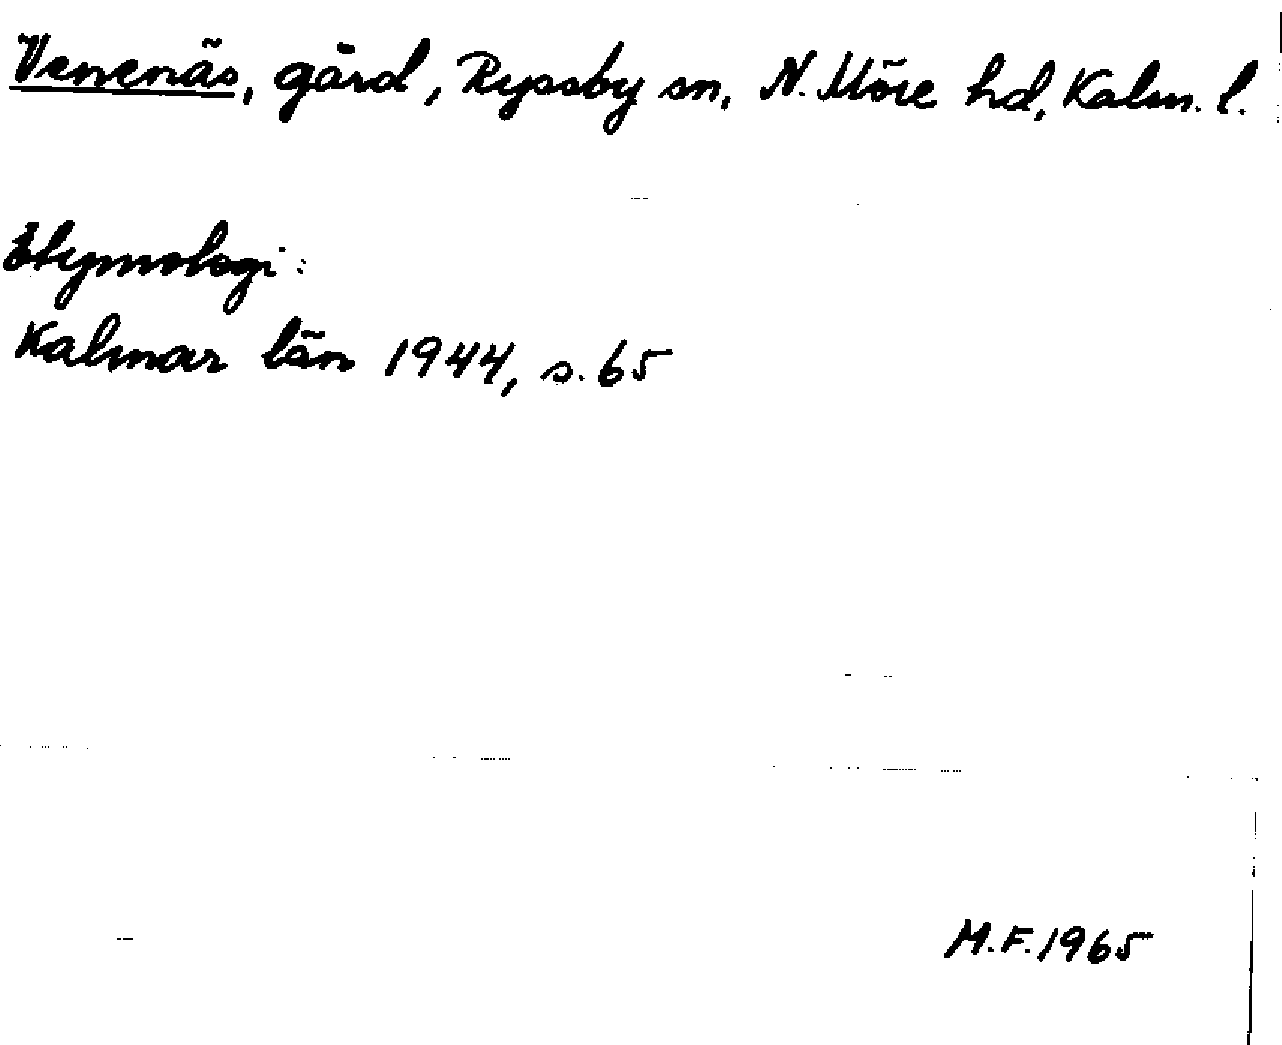 Venenäs, gård, Ryssby sn, N. Möre hd, Kalm. l.
Etymologi:
Kalmar län 1944, s. 65
M.F. 1965